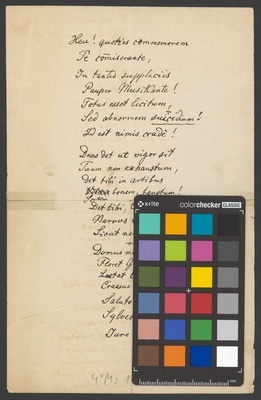 Heu! quoties commemorem
Te comiserante,
In tantis suppliciis
Pauper Musikante!
Totus esset licitum,
Sed abnormem suicidum!
Id est nimis crudè!
Deus det ut vigor sit
Tuum non exhaustum,
Det tibi in artibus
bonem, faustum!
Det tibi
Nervos
Sicut ne
Domus m
Floret G
Crassus
Saluto
Sylves
Jura
x-rite
colorchecker CLASSIC
mm